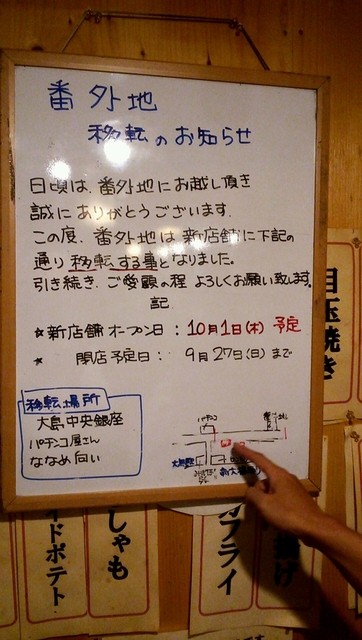 番外地
移転のお知らせ
日頃は、番外地にお越し頂き
誠にありがとうございます。
この度、番外地は新店舗に下記の
通り移転する事となりました。
引き続き、ご愛顧の程 よろしくお願い致します。
記
★新店舗オープン日：10月1日(木) 予定
★ 閉店予定日：9月27日(日)まで
移転場所
大島中央銀座
パチンコ屋さん
ななめ向い
パチンコ
大島駅
新大橋
目玉焼き
イドポテト
しゃも
フライ
揚げ